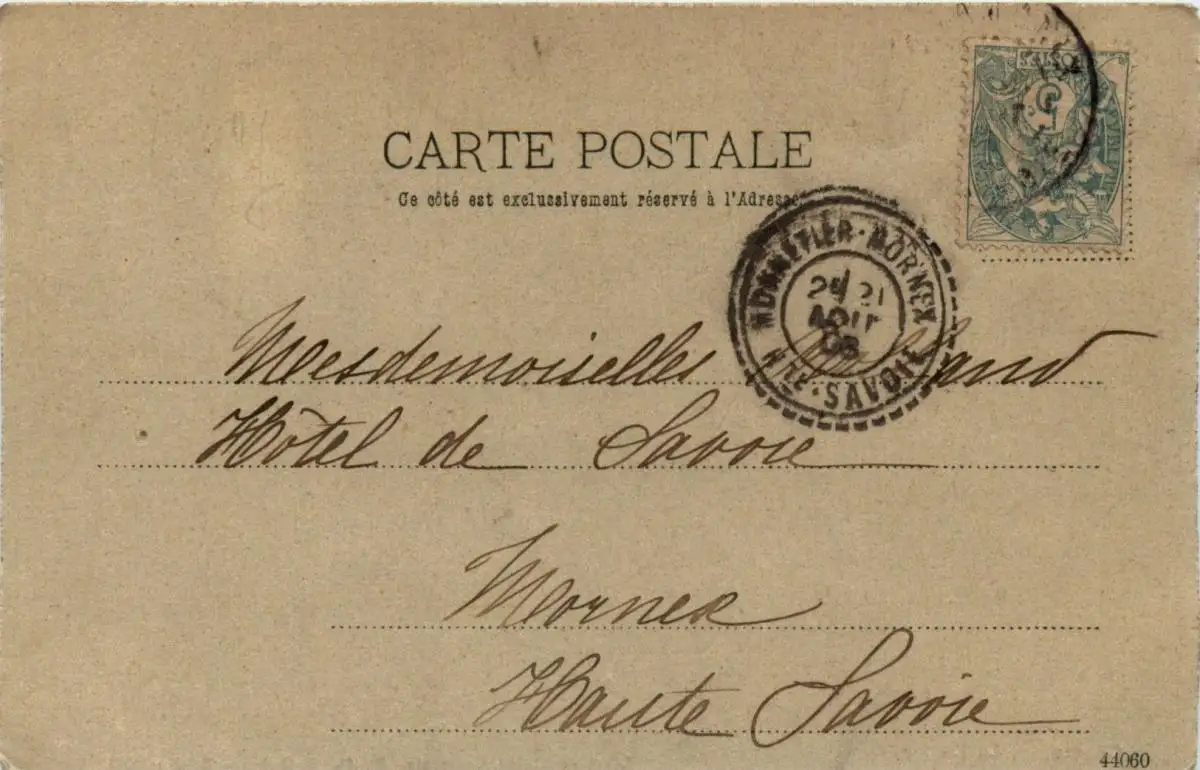 CARTE POSTALE
Ce côté est exclussivement réservé à l'Adresse
POSTES
MONNETIER-MORNEX
21
AOUT
HTE-SAVOIE
Mesdemoiselles
Hôtel de Savoie
Mornex
Haute Savoie
44060